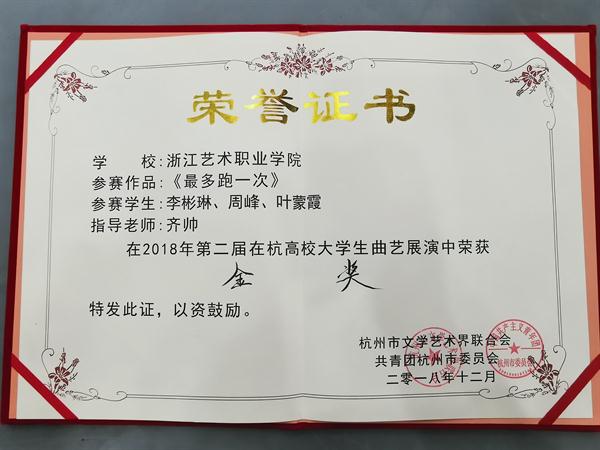 荣誉证书
学 校:浙江艺术职业学院
参赛作品:《最多跑一次》
参赛学生:李彬琳、周峰、叶蒙霞
指导老师:齐帅
在2018年第二届在杭高校大学生曲艺展演中荣获
金 奖
特发此证，以资鼓励。
杭州市文学艺术界联合会
共青团杭州市委员会
二零一八年十二月
杭州市委员会